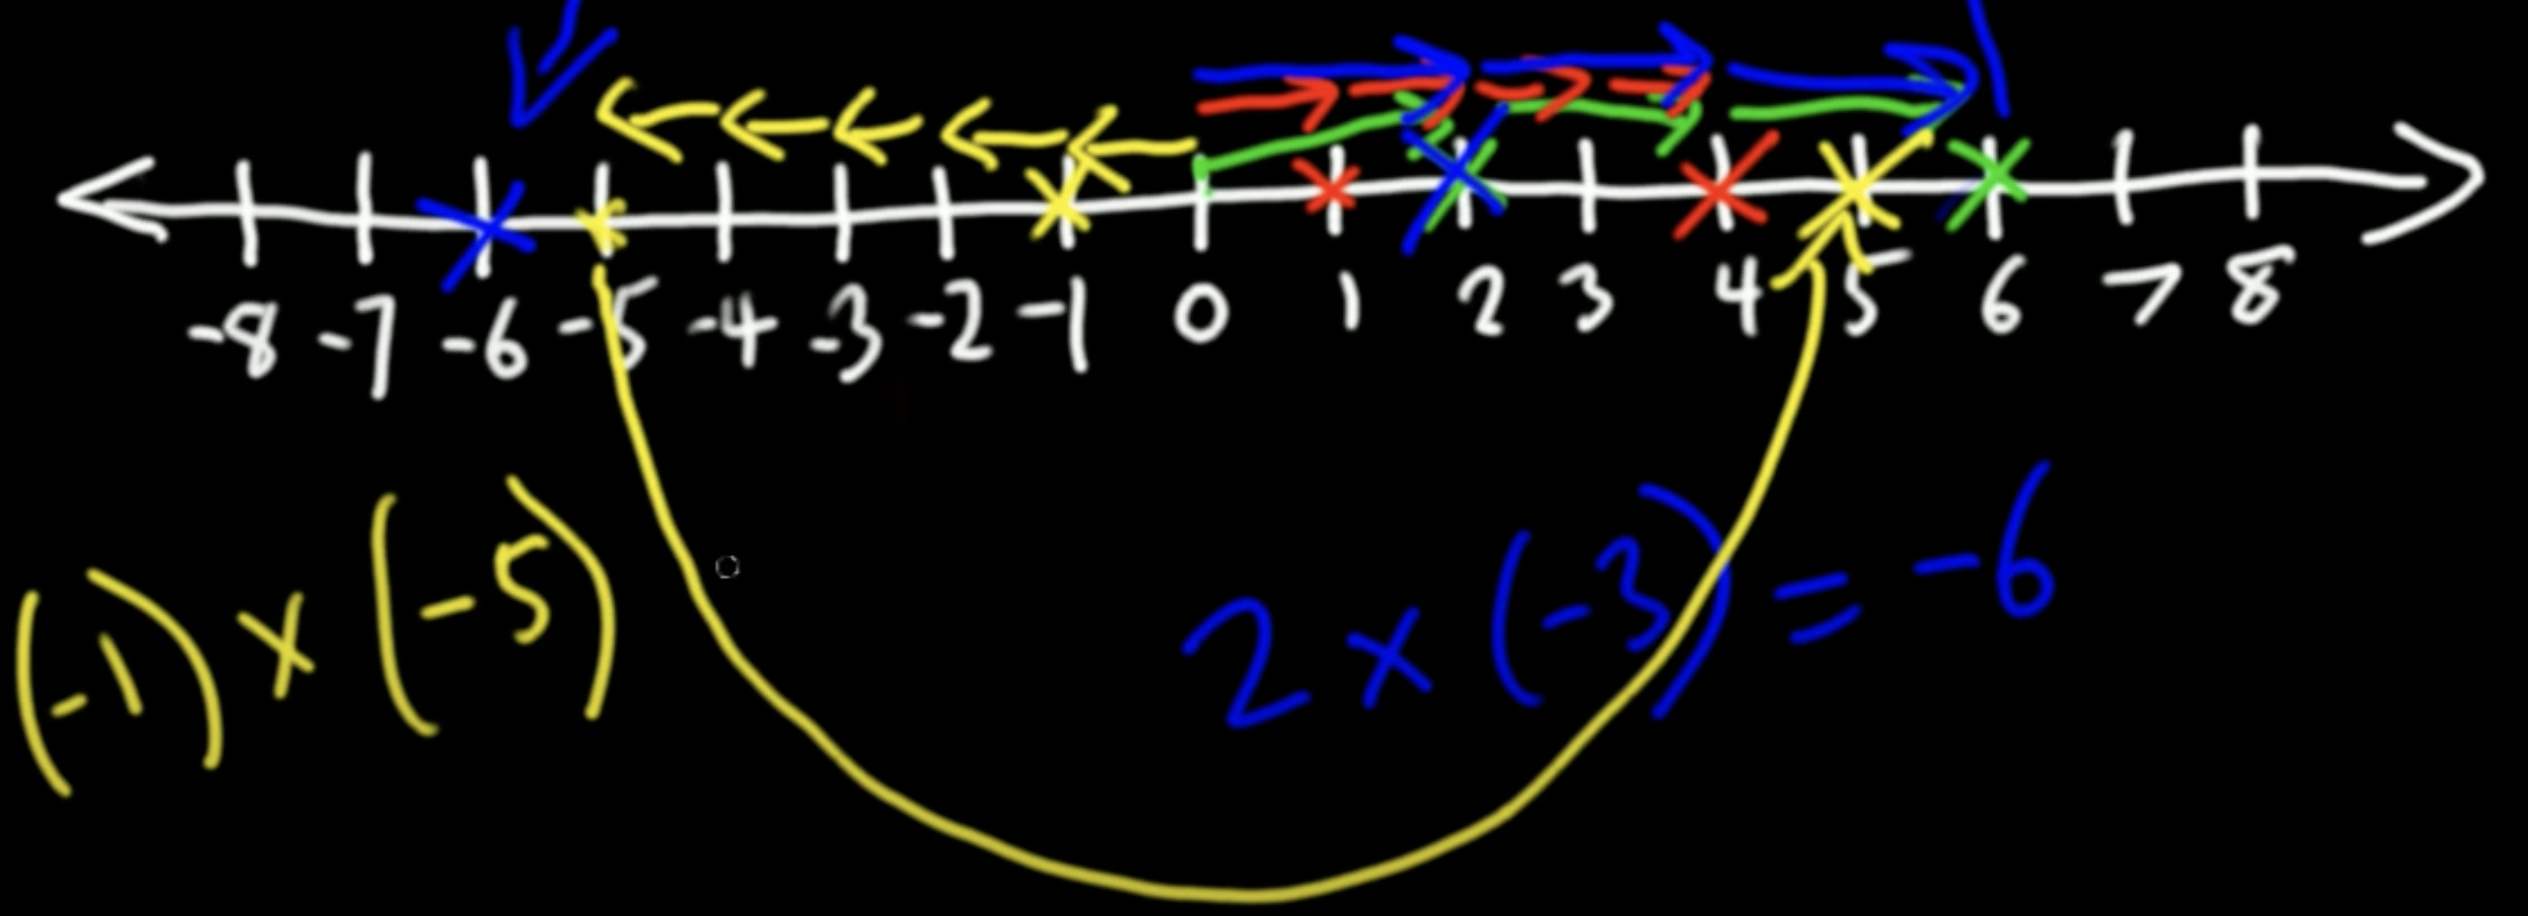 -8 -7 -6 -5 -4 -3 -2 -1 0 1 2 3 4 5 6 7 8
(-1) × (-5)
2 × (-3) = -6